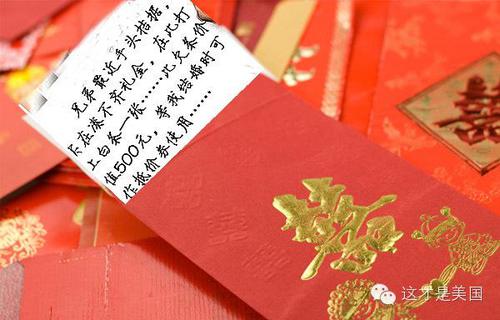 兄弟最近手头拮据,
卡在凑不齐礼金,在此打
上白条一张……此欠条价
值500元,等我结婚时可
作抵价券使用……
囍
囍
这才是美国